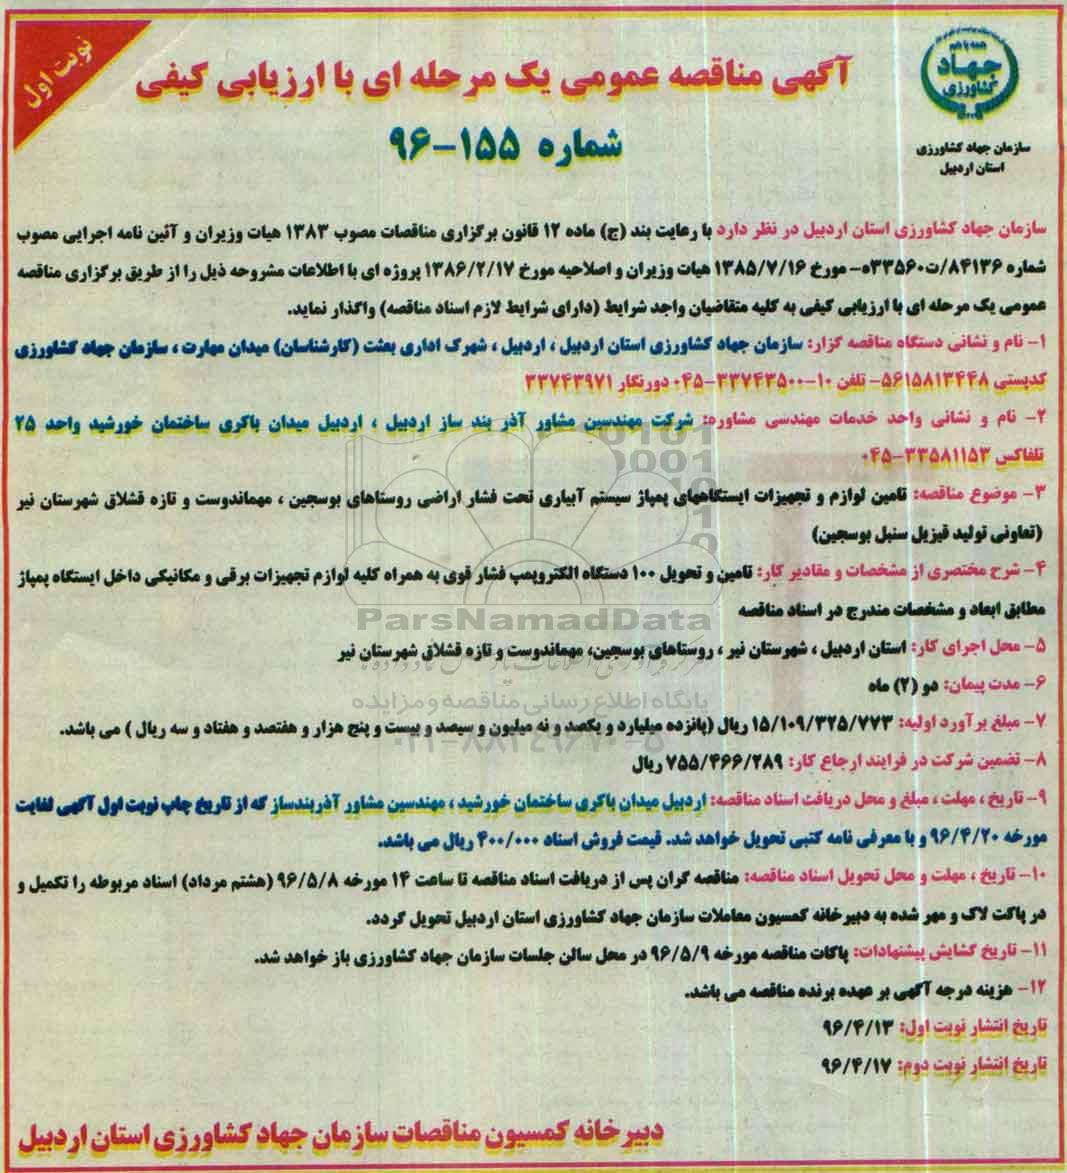 نوبت اول
همه با هم
جهاد
کشاورزی
سازمان جهاد کشاورزی
استان اردبیل
آگهی مناقصه عمومی یک مرحله ای با ارزیابی کیفی
شماره ۱۵۵-۹۶
سازمان جهاد کشاورزی استان اردبیل در نظر دارد با رعایت بند (ج) ماده ۱۲ قانون برگزاری مناقصات مصوب ۱۳۸۳ هیات وزیران و آئین نامه اجرایی مصوب
شماره ۸۴۱۳۶/ت۳۳۵۶۰ه- مورخ ۱۳۸۵/۷/۱۶ هیات وزیران و اصلاحیه مورخ ۱۳۸۶/۲/۱۷ پروژه ای با اطلاعات مشروحه ذیل را از طریق برگزاری مناقصه
عمومی یک مرحله ای با ارزیابی کیفی به کلیه متقاضیان واجد شرایط (دارای شرایط لازم اسناد مناقصه) واگذار نماید.
۱- نام و نشانی دستگاه مناقصه گزار: سازمان جهاد کشاورزی استان اردبیل ، اردبیل ، شهرک اداری بعثت (کارشناسان) میدان مهارت ، سازمان جهاد کشاورزی
کدپستی ۵۶۱۵۸۱۳۴۴۸- تلفن ۱۰-۳۳۷۴۳۵۰۰-۰۴۵ دورنگار ۳۳۷۴۳۹۷۱
۲- نام و نشانی واحد خدمات مهندسی مشاوره: شرکت مهندسین مشاور آذر بند ساز اردبیل ، اردبیل میدان باکری ساختمان خورشید واحد ۲۵
تلفاکس ۳۳۵۸۱۱۵۳-۰۴۵
۳- موضوع مناقصه: تامین لوازم و تجهیزات ایستگاههای پمپاژ سیستم آبیاری تحت فشار اراضی روستاهای بوسجین ، مهماندوست و تازه قشلاق شهرستان نیر
(تعاونی تولید قیزیل سنبل بوسجین)
۴- شرح مختصری از مشخصات و مقادیر کار: تامین و تحویل ۱۰۰ دستگاه الکتروپمپ فشار قوی به همراه کلیه لوازم تجهیزات برقی و مکانیکی داخل ایستگاه پمپاژ
مطابق ابعاد و مشخصات مندرج در اسناد مناقصه
ParsNamadData
۵- محل اجرای کار: استان اردبیل ، شهرستان نیر ، روستاهای بوسجین، مهماندوست و تازه قشلاق شهرستان نیر
۶- مدت پیمان: دو (۲) ماه
پایگاه اطلاع رسانی مناقصه و مزایده
۷- مبلغ برآورد اولیه: ۱۵/۱۰۹/۳۲۵/۷۷۳ ریال (پانزده میلیارد و یکصد و نه میلیون و سیصد و بیست و پنج هزار و هفتصد و هفتاد و سه ریال ) می باشد.
۸- تضمین شرکت در فرایند ارجاع کار: ۷۵۵/۴۶۶/۲۸۹ ریال
۹- تاریخ ، مهلت ، مبلغ و محل دریافت اسناد مناقصه: اردبیل میدان باکری ساختمان خورشید ، مهندسین مشاور آذربندساز که از تاریخ چاپ نوبت اول آگهی لغایت
مورخه ۹۶/۴/۲۰ و با معرفی نامه کتبی تحویل خواهد شد. قیمت فروش اسناد ۴۰۰/۰۰۰ ریال می باشد.
۱۰- تاریخ ، مهلت و محل تحویل اسناد مناقصه: مناقصه گران پس از دریافت اسناد مناقصه تا ساعت ۱۴ مورخه ۹۶/۵/۸ (هشتم مرداد) اسناد مربوطه را تکمیل و
در پاکت لاک و مهر شده به دبیرخانه کمسیون معاملات سازمان جهاد کشاورزی استان اردبیل تحویل گردد.
۱۱- تاریخ گشایش پیشنهادات: پاکات مناقصه مورخه ۹۶/۵/۹ در محل سالن جلسات سازمان جهاد کشاورزی باز خواهد شد.
۱۲- هزینه درجه آگهی بر عهده برنده مناقصه می باشد.
تاریخ انتشار نوبت اول: ۹۶/۴/۱۳
تاریخ انتشار نوبت دوم: ۹۶/۴/۱۷
دبیرخانه کمسیون مناقصات سازمان جهاد کشاورزی استان اردبیل